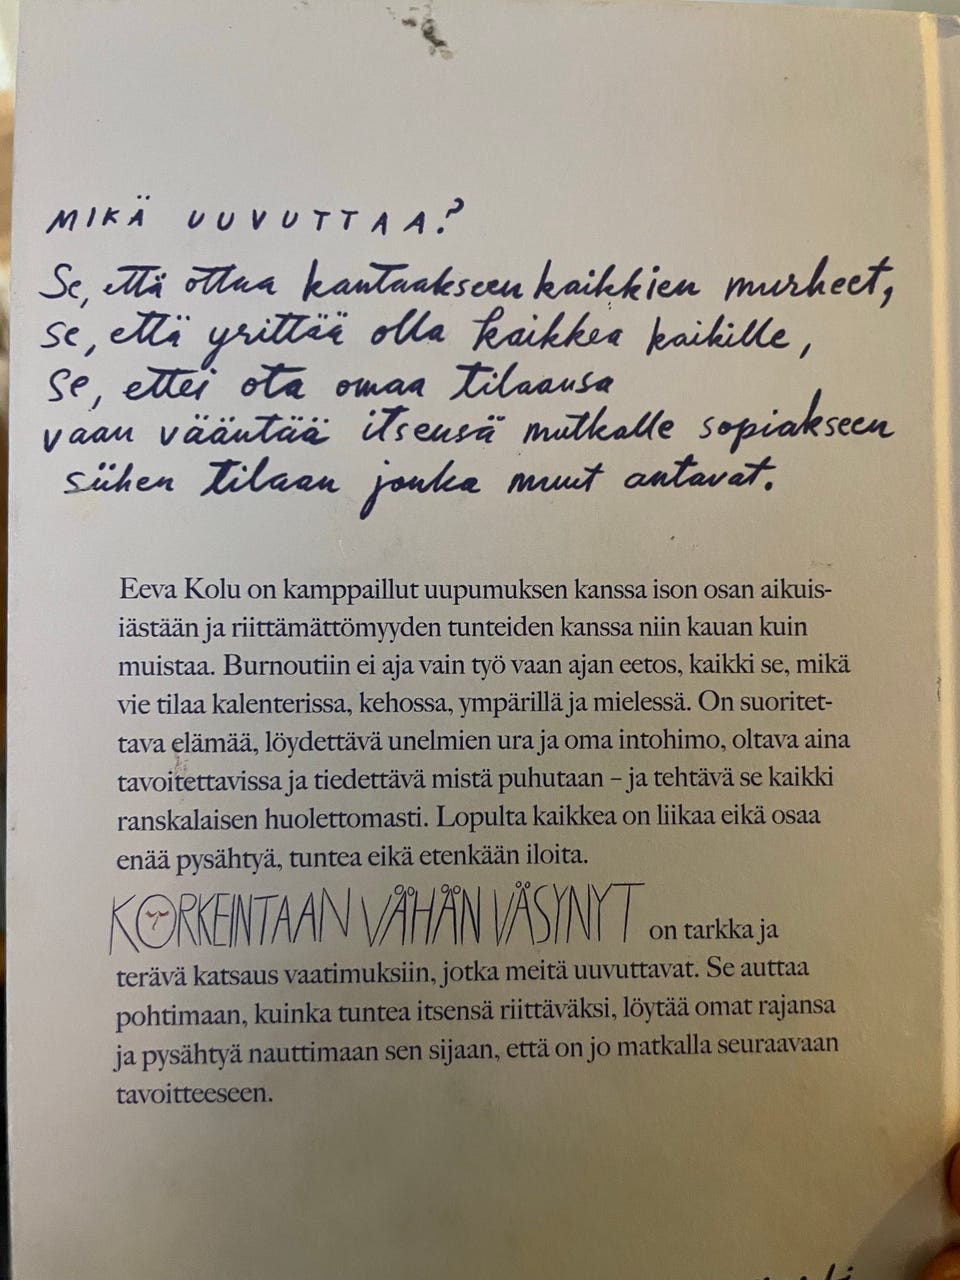 MIKÄ UUVUTTAA?
Se, että ottaa kantaakseen kaikkien murheet,
se, että yrittää olla kaikkea kaikille,
se, ettei ota omaa tilaansa
vaan vääntää itsensä mutkalle sopiakseen
siihen tilaan jonka muut antavat.
Eeva Kolu on kamppaillut uupumuksen kanssa ison osan aikuis-
iästään ja riittämättömyyden tunteiden kanssa niin kauan kuin
muistaa. Burnoutiin ei aja vain työ vaan ajan eetos, kaikki se, mikä
vie tilaa kalenterissa, kehossa, ympärillä ja mielessä. On suoritet-
tava elämää, löydettävä unelmien ura ja oma intohimo, oltava aina
tavoitettavissa ja tiedettävä mistä puhutaan – ja tehtävä se kaikki
ranskalaisen huolettomasti. Lopulta kaikkea on liikaa eikä osaa
enää pysähtyä, tuntea eikä etenkään iloita.
KORKEINTAAN VÄHÄN VÄSYNYT on tarkka ja
terävä katsaus vaatimuksiin, jotka meitä uuvuttavat. Se auttaa
pohtimaan, kuinka tuntea itsensä riittäväksi, löytää omat rajansa
ja pysähtyä nauttimaan sen sijaan, että on jo matkalla seuraavaan
tavoitteeseen.